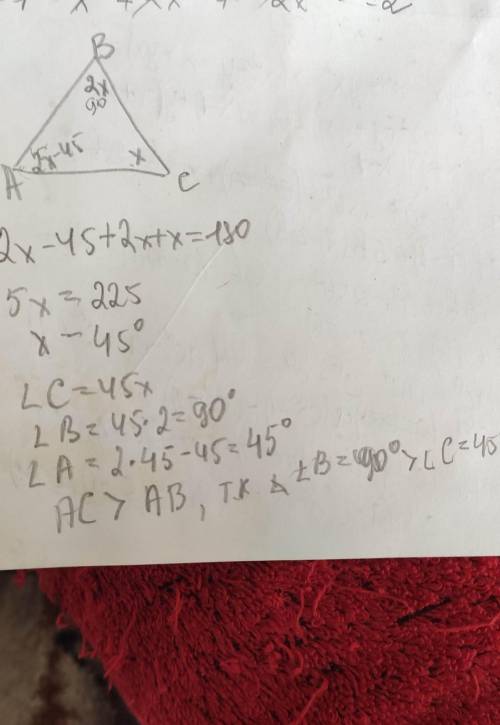 B
2x
90
2x-45
x
A
C
2x-45+2x+x=180
5x=225
x-45°
∠C=45x
∠B=45·2=90°
∠A=2·45-45=45°
AC>AB, т.к ∠B=90°>∠C=45